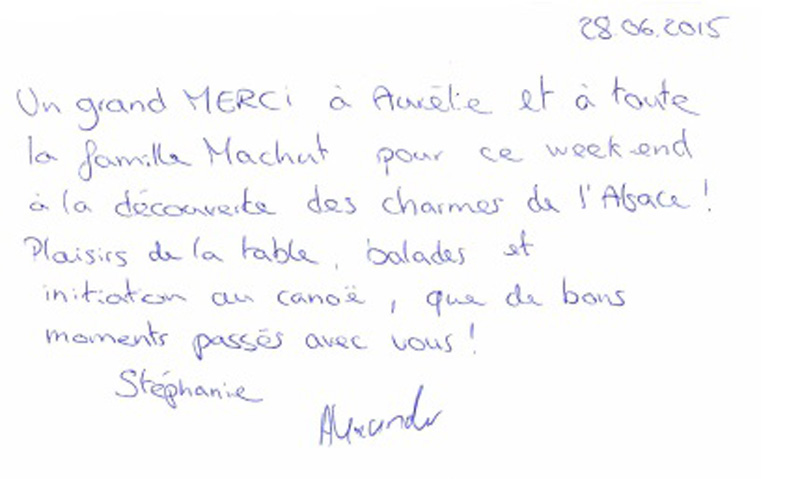 28.06.2015
Un grand MERCi à Aurélie et à toute
la famille Machut pour ce week-end
à la découverte des charmes de l'Alsace !
Plaisirs de la table, balades et
initiation au canoë, que de bons
moments passés avec vous !
Stéphanie
Alexandre